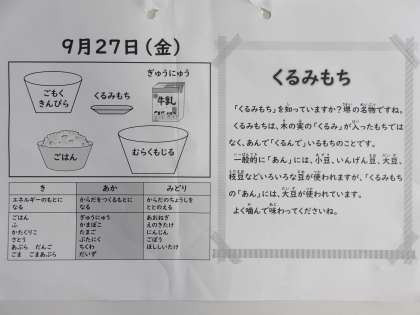 9月27日(金)
ぎゅうにゅう
ごもく
きんぴら
くるみもち
牛乳
ごはん
むらくもじる
き あか みどり
エネルギーのもとに
なる
からだをつくるもとに
なる
からだのちょうしを
ととのえる
ごはん
ふ
かたくりこ
さとう
あぶら だんご
ごま ごまあぶら
ぎゅうにゅう
かまぼこ
たまご
ぶたにく
ちくわ
だいず
あおねぎ
えのきたけ
にんじん
ごぼう
ほししいたけ
くるみもち
「くるみもち」を知っていますか?堺の名物ですね。
くるみもちは、木の実の「くるみ」が入ったもちでは
なく、あんで「くるんで」いるもちのことです。
一般的に「あん」には、小豆、いんげん豆、大豆、
枝豆などいろいろな豆が使われますが、「くるみもち
の「あん」には、大豆が使われています。
よく噛んで味わってくださいね。